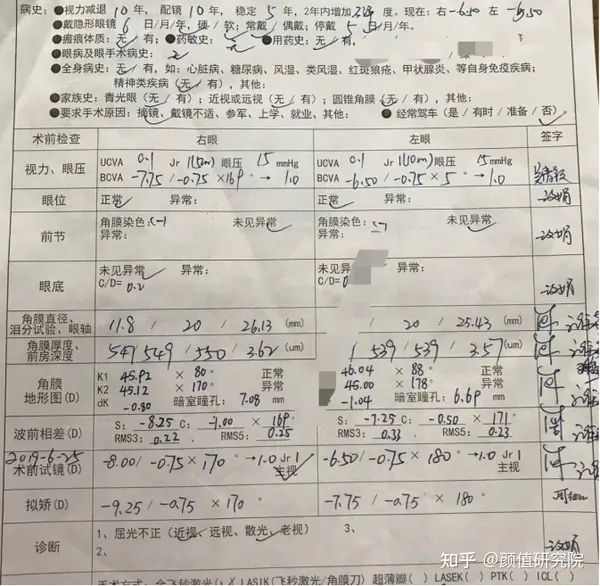 病史:●视力减退 10 年, 配镜 10 年, 稳定 5 年, 2年内增加 度。现在: 右 -6.50 左 -6.50
●戴隐形眼镜 6 日/月/年, 硬/软; 常戴/偶戴; 停戴 5 日/月/年。
●瘢痕体质: 无/有; ●药敏史: 无 ●用药史: 无/有,
●眼病及眼手术病史: 无
●全身病史: 无/有, 如: 心脏病、糖尿病、风湿、类风湿、红斑狼疮、甲状腺炎、等自身免疫疾病;
精神类疾病(无/有), 其他:
●家族史: 青光眼(无/有); 近视或远视(无/有); 圆锥角膜(无/有), 其他:
●要求手术原因: 摘镜、戴镜不适、参军、上学、就业、其他: ●经常驾车(是/有时/准备/否)
术前检查 右眼 左眼 签字
视力、眼压 UCVA 0.1 Jr 1(15cm) 眼压 15 mmHg UCVA 0.1 Jr 1(10cm) 眼压 15 mmHg
BCVA -7.75 / -0.75 ×169 → 1.0 BCVA -6.50 / -0.75 × 5° → 1.0
眼位 正常 异常: 正常 异常:
前节 角膜染色: (-) 未见异常 角膜染色: (-) 未见异常
异常: 异常:
眼底 未见异常 异常: 未见异常 异常:
C/D= 0.2 C/D=
角膜直径、泪分试验、眼轴 11.8 / 20 / 26.13 (mm) / 20 / 25.43 (mm)
角膜厚度、前房深度 547 549 / 550 / 3.62 (um) 539 / 539 / 3.57 (um)
角膜地形图(D) K1 45.92 × 80° 正常 46.04 × 88° 正常
K2 45.12 × 170° 异常 45.00 × 178° 异常
dK -0.80 暗室瞳孔: 7.08 mm -1.04 暗室瞳孔: 6.69 mm
波前相差(D) S: -8.25 C: -1.00 × 169° S: -7.25 C: -0.50 × 171°
RMS3: 0.22 RMS5: 0.25 RMS3: 0.33 RMS5: 0.23
2019-6-25
术前试镜(D) -8.00/ -0.75 × 170° → 1.0 Jr 1 -6.50/ -0.75 × 180° → 1.0 Jr 1
主视 主视
拟矫(D) -9.25 / -0.75 × 170° -7.75 / -0.75 × 180°
诊断 1、屈光不正(近视、远视、散光、老视) 3、
2、
手术方式: 全飞秒激光( ) LASIK(飞秒激光/角膜刀) 超薄瓣( ) LASEK( ) PTK( ) ICL( )
知乎 @颜值研究院